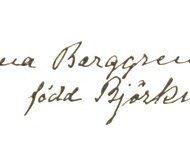 na Berggren
född Björk